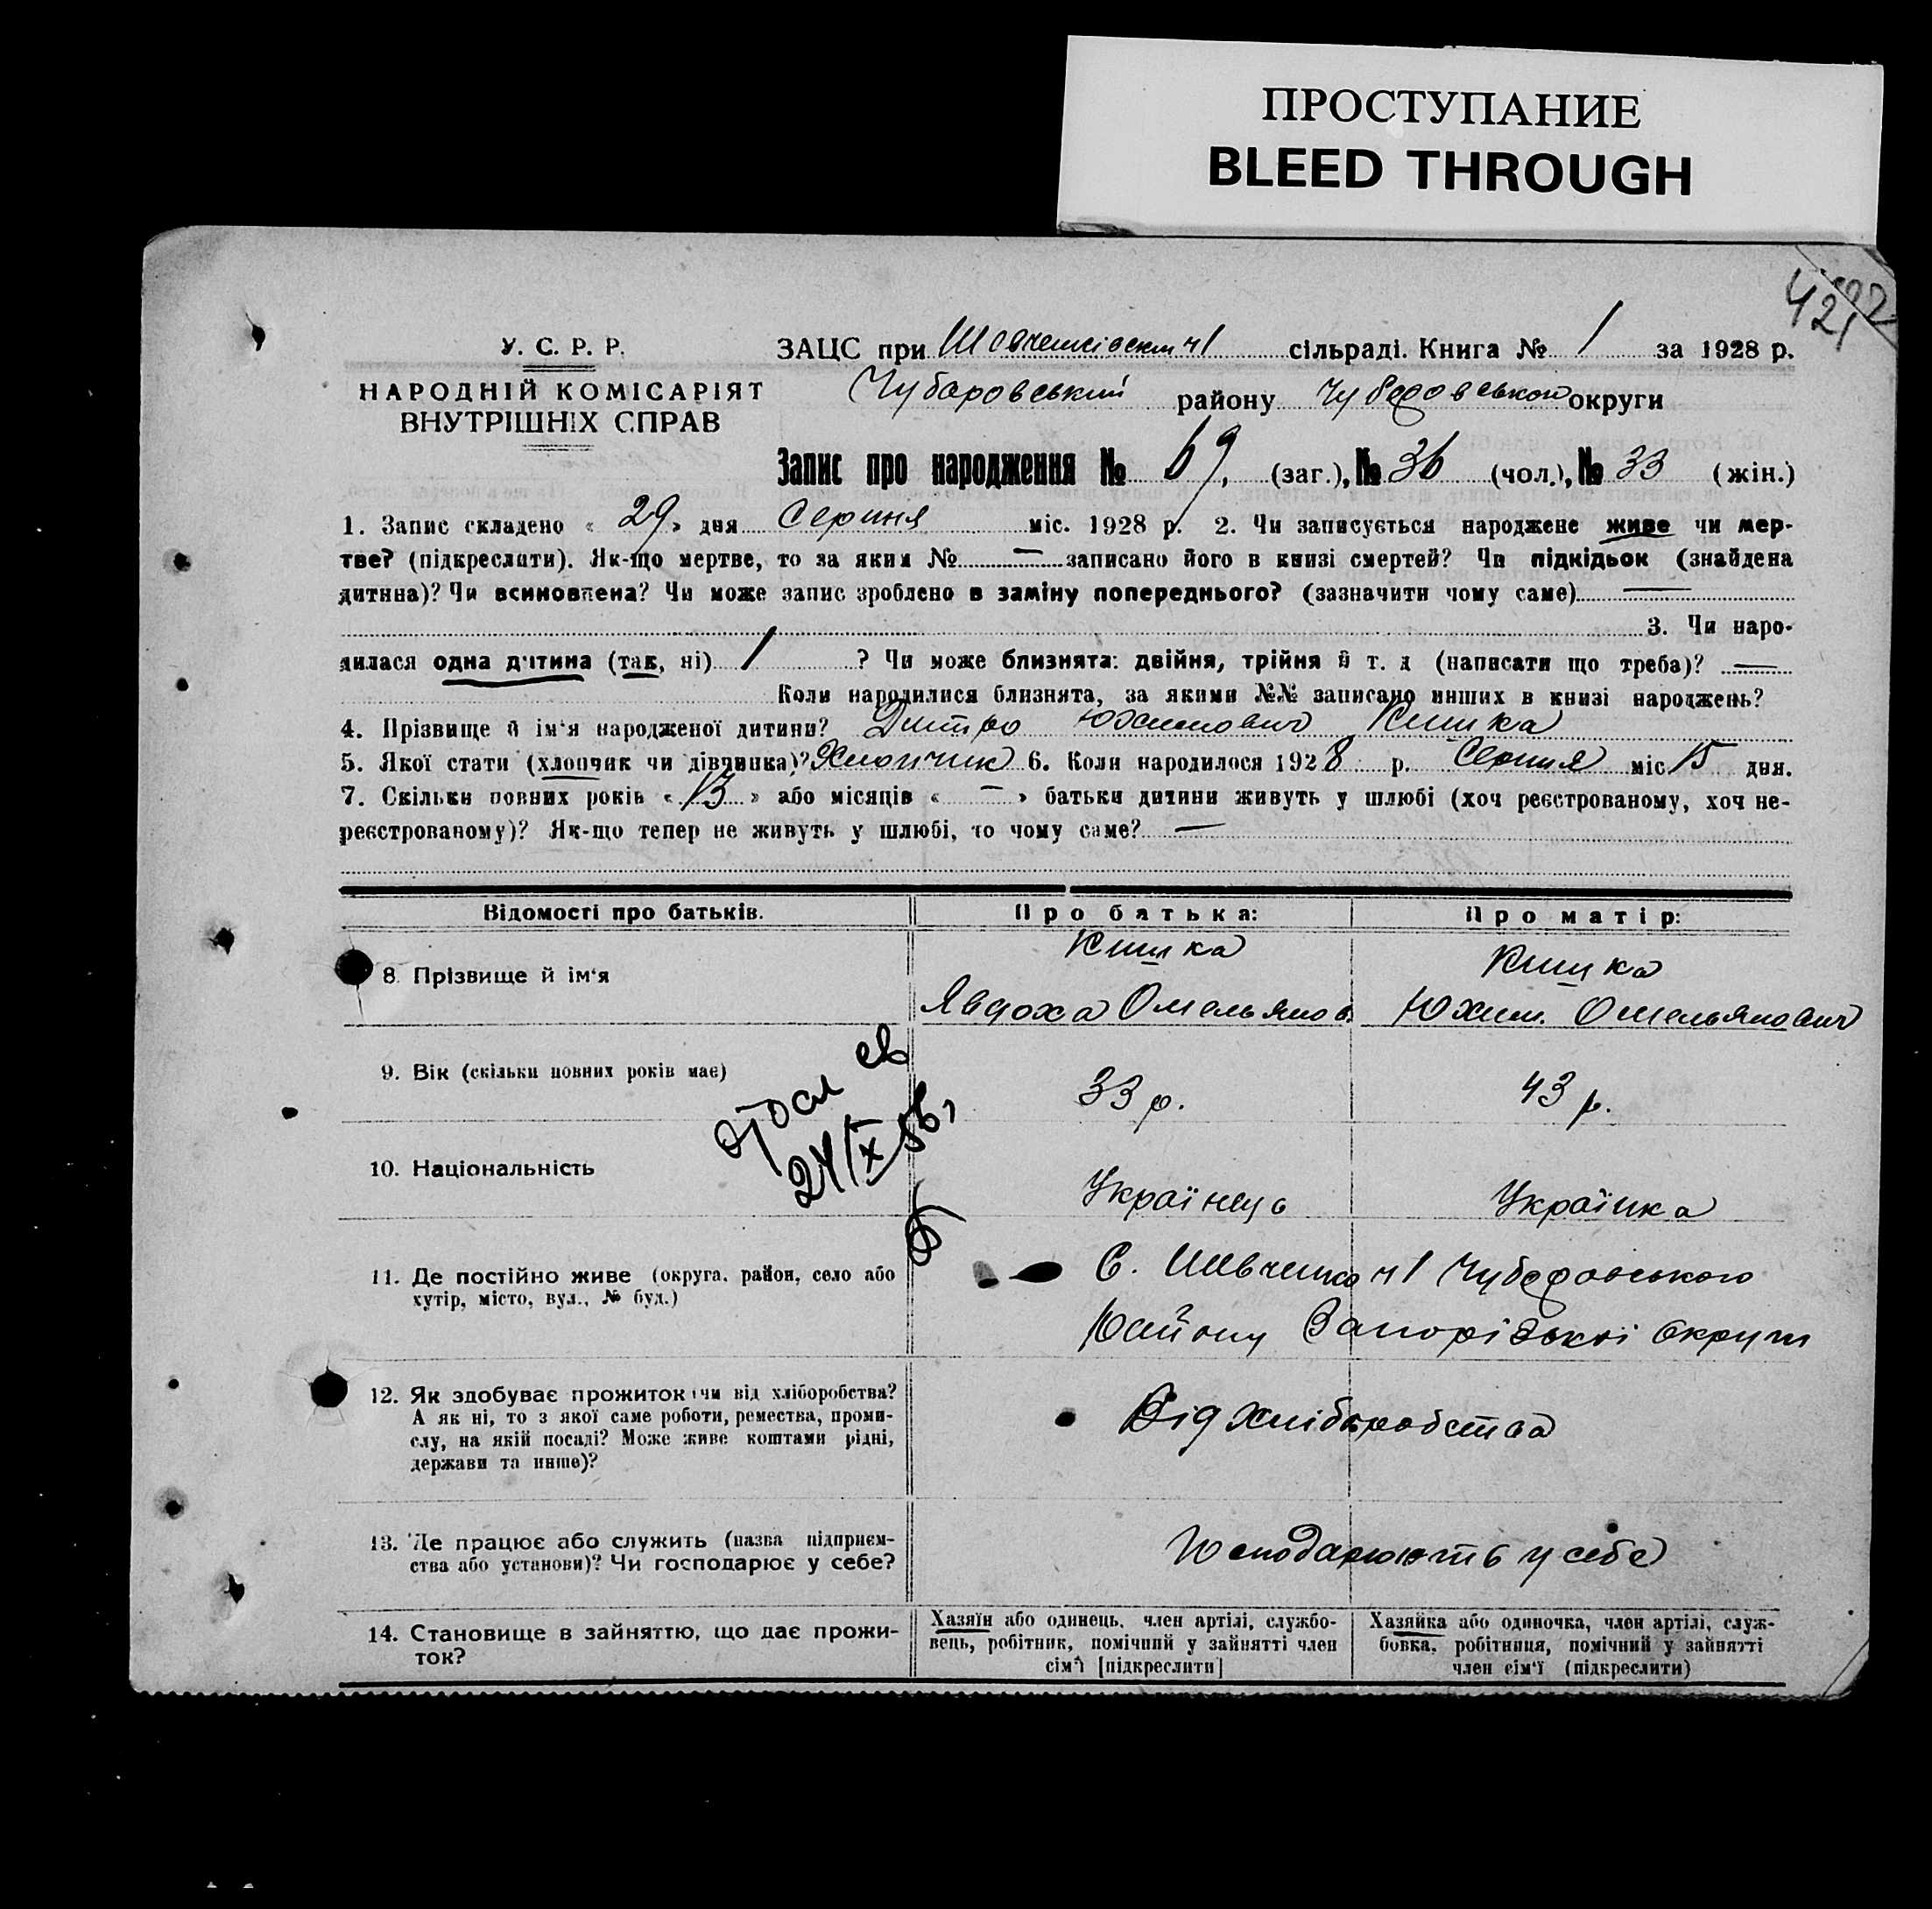 ПРОСТУПАНИЕ
BLEED THROUGH
421
У. С. Р. Р.
НАРОДНІЙ КОМІСАРІЯТ
ВНУТРІШНІХ СПРАВ
ЗАЦС при Шевченківскій ч1 сільраді. Книга № 1 за 1928 р.
Чубаровський району Чубаровськой округи
Запис про народження № 69, (заг.), № 36 (чол.), № 33 (жін.)
1. Запис складено « 29 » дня Серпня міс. 1928 р. 2. Чи записується народжене живе чи мер-
тве? (підкреслити). Як-що мертве, то за яким № — записано його в книзі смертей? Чи підкідьок (знайдена
дитина)? Чи всиновлена? Чи може запис зроблено в заміну попереднього? (зазначити чому саме) —
3. Чи наро-
дилася одна дитина (так, ні) 1 ? Чи може близнята: двійня, трійня й т. д (написати що треба)? —
Коли народилися близнята, за якими №№ записано инших в книзі народжень?
4. Прізвище й ім'я народженої дитини? Дмитро Юхимович Кишка
5. Якої стати (хлопчик чи дівчинка)? Хлопчик 6. Коли народилося 1928 р. Серпня міс 15 дня.
7. Скільки повних років « 13 » або місяців « — » батьки дитини живуть у шлюбі (хоч реєстрованому, хоч не-
реєстрованому)? Як-що тепер не живуть у шлюбі, то чому саме? —
Відомості про батьків. Про батька: Про матір:
8. Прізвище й ім'я Кишка Кишка
Явдоха Омельянов. Юхим. Омельянович
9. Вік (скільки повних років має) 33 р. 43 р.
24/IX 56,
10. Національність Українець Українка
11. Де постійно живе (округа, район, село або
хутір, місто, вул., № буд.)
С. Шевченко ч1 Чубаровського
Району Запорізької округи
12. Як здобуває прожиток чи від хліборобства?
А як ні, то з якої саме роботи, ремества, проми-
слу, на якій посаді? Може живе коштами рідні,
держави та инше)?
Від Хліборобства
13. Де працює або служить (назва підприєм-
ства або установи)? Чи господарює у себе?
Господарюють у себе
14. Становище в зайняттю, що дає прожи-
ток?
Хазяїн або одинець, член артілі, службо-
вець, робітник, помічний у зайнятті член
сім'ї [підкреслити]
Хазяйка або одиночка, член артілі, служ-
бовка, робітниця, помічний у зайнятті
член сім'ї (підкреслити)